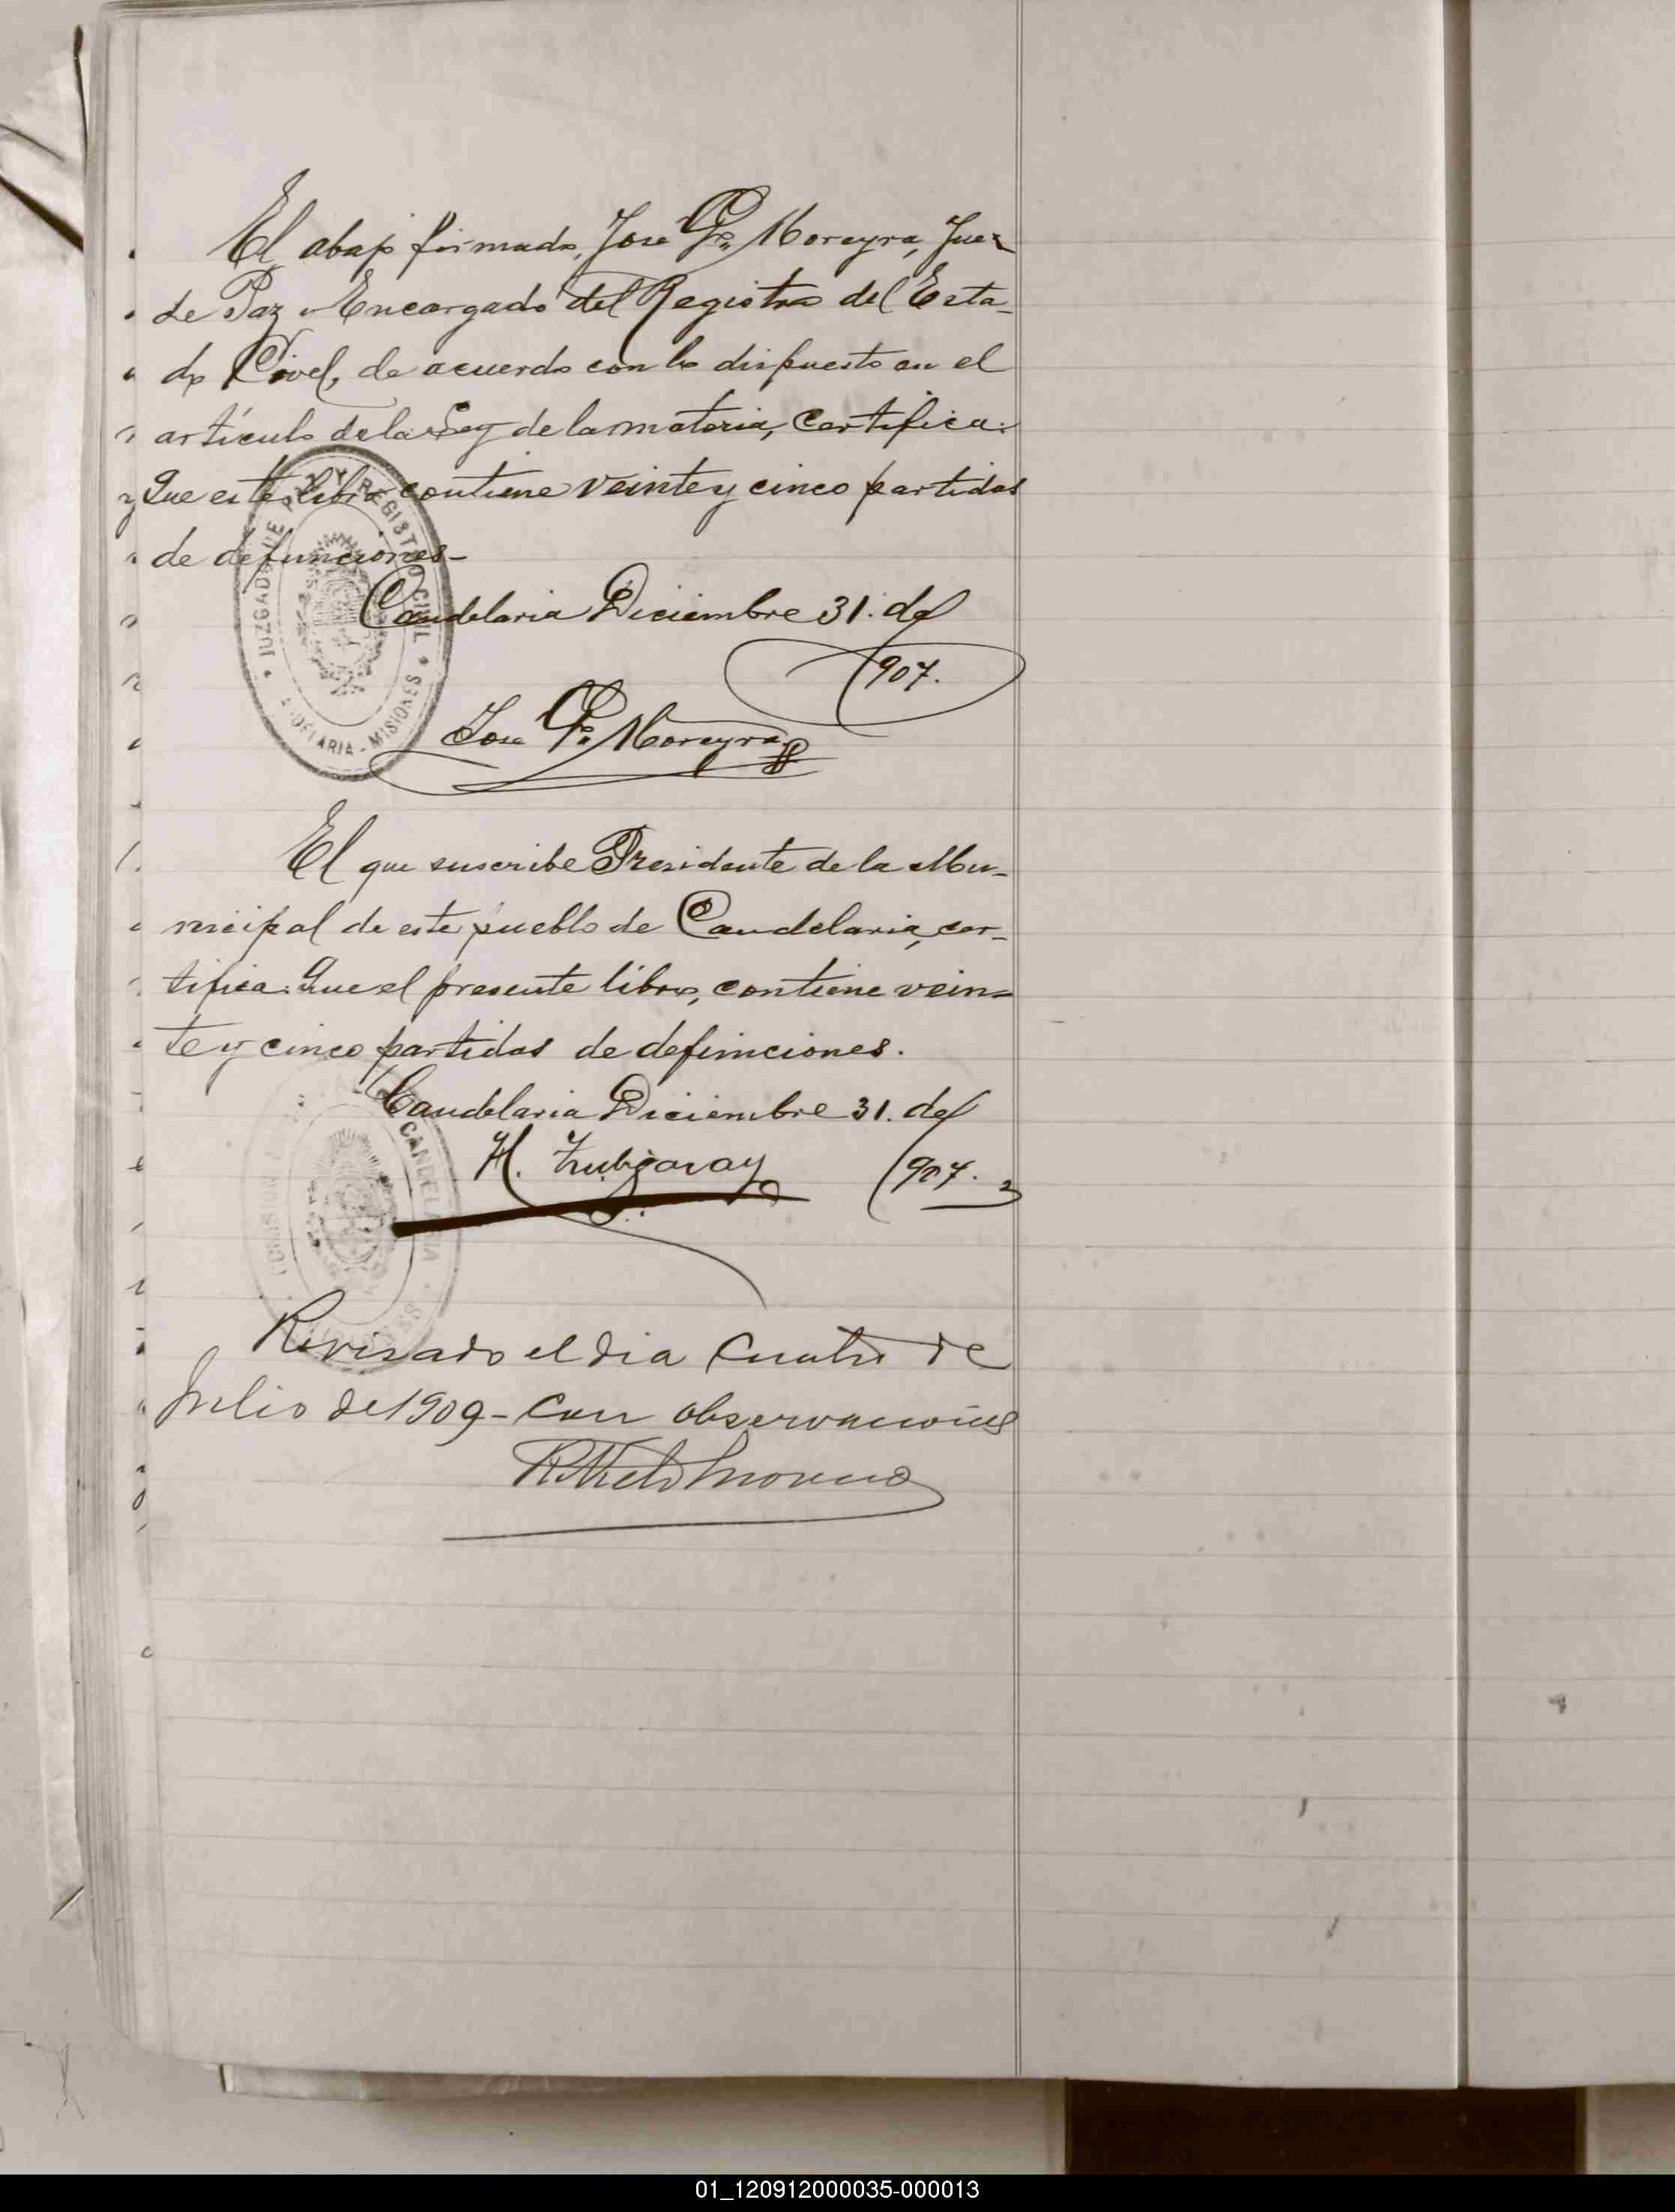 El abajo firmado, Jose Go. Moreyra, Juez
de Paz y Encargado del Registro del Esta-
do Civel, de acuerdo con lo dispuesto en el
artículo de la Ley de la materia, certifica:
Que este libro contiene veinte y cinco partidas
de defunciones-
Candelaria Diciembre 31. de
1907.
Jose Go. Moreyra
JUZGADO DE PAZ Y REGISTRO CIVIL
CANDELARIA - MISIONES
El que suscribe Presidente de la Mu-
nicipal de este pueblo de Candelaria, cer-
tifica: Que el presente libro, contiene vein-
te y cinco partidas de defunciones.
Candelaria Diciembre 31. de
1907.
H. Zubizaray
CANDELARIA
Revisado el dia cuatro de
Julio de 1909- con observaciones
Moreno
01_120912000035-000013